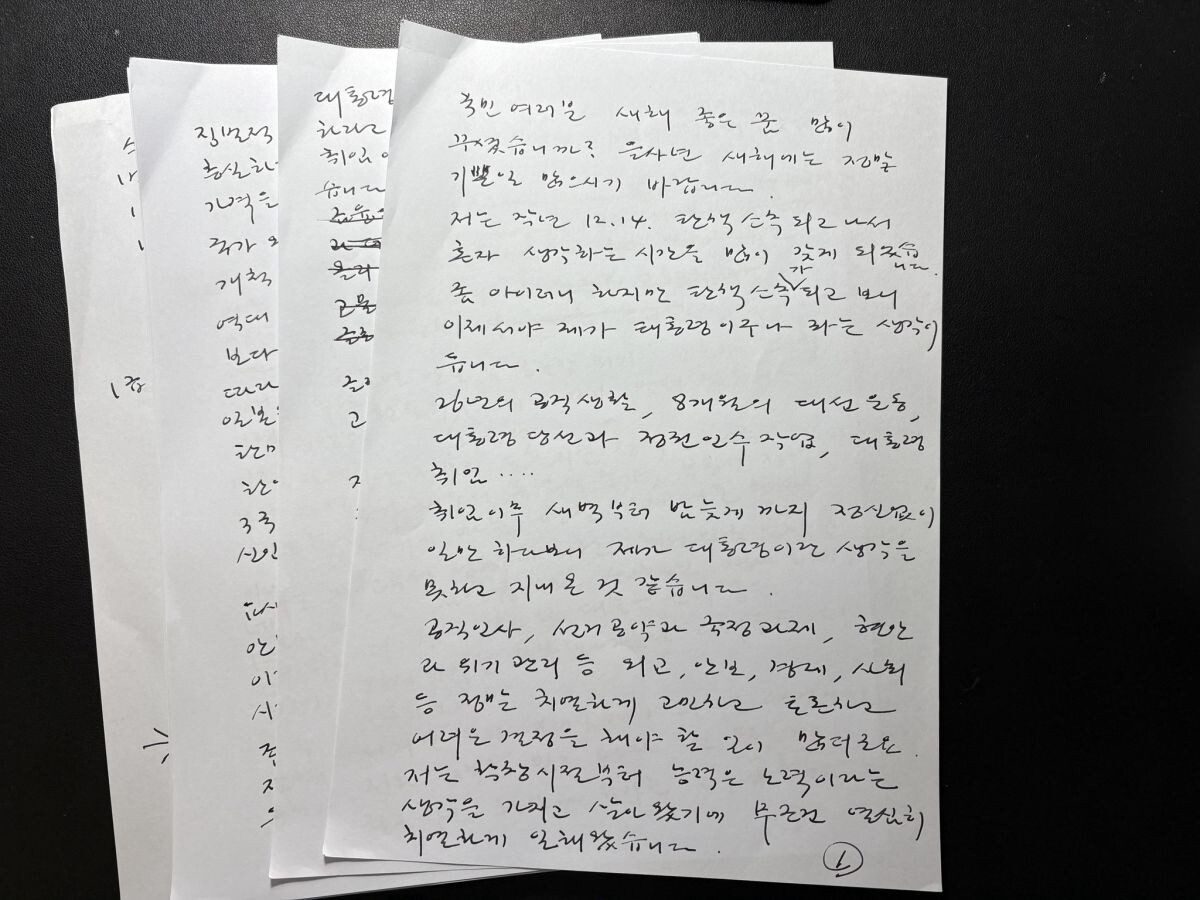 국민 여러분 새해 좋은 꿈 많이
꾸셨습니까? 을사년 새해에는 정말
기쁜일 많으시기 바랍니다.
저는 작년 12.14. 탄핵 소추 되고 나서
혼자 생각하는 시간을 많이 갖게 되었습니다.
좀 아이러니 하지만 탄핵 소추가 되고 보니
이제서야 제가 대통령이구나 라는 생각이
듭니다.
26년의 공직생활, 8개월의 대선 운동,
대통령 당선과 정권 인수 작업, 대통령
취임 ····
취임이후 새벽부터 밤늦게 까지 정신없이
일만 하다보니 제가 대통령이란 생각을
못하고 지내 온 것 같습니다.
공직인사, 선거공약과 국정과제, 현안
과 위기 관리 등 외교, 안보, 경제, 사회
등 정말 치열하게 고민하고 토론하고
어려운 결정을 해야 할 일이 많더군요.
저는 학창시절부터 능력은 노력이라는
생각을 가지고 살아 왔기에 무조건 열심히
치열하게 일해왔습니다.
1
대통령
하라고
취임
습니다
고
징벌적
충실하
가격을
국가
개척
역대
보다
따라
일본
한미
3국